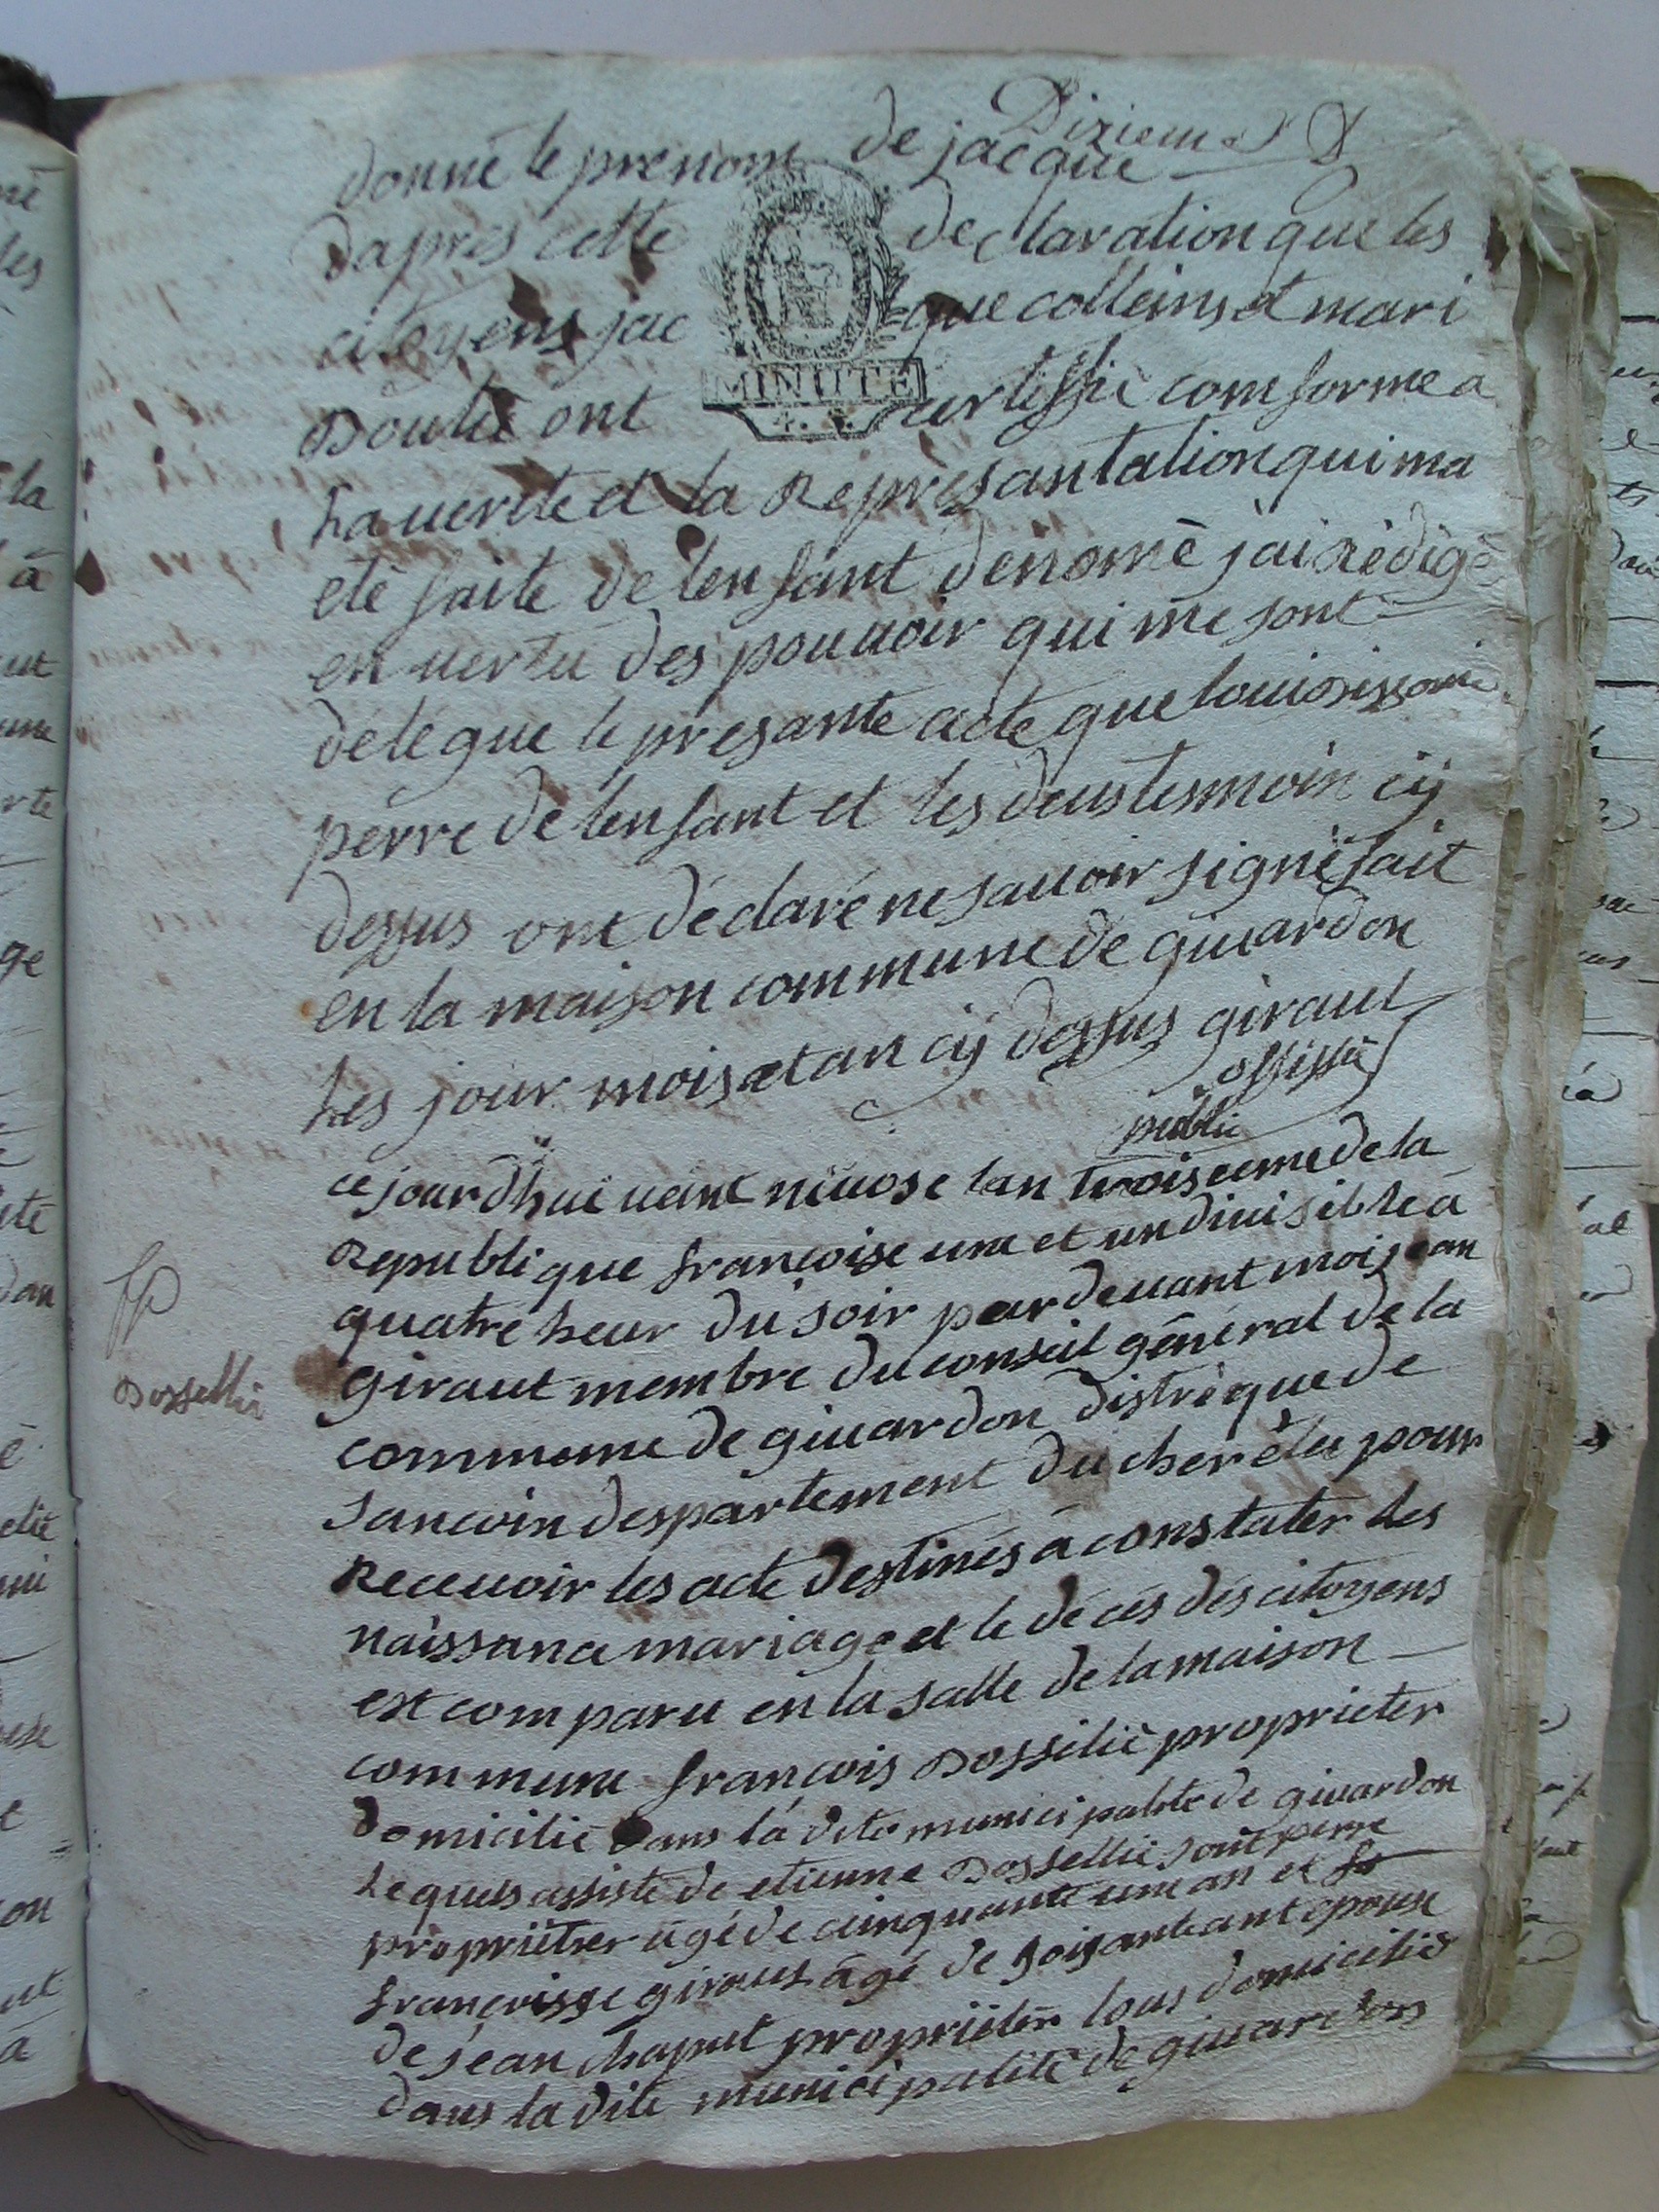 Dixiem
donné le prenom de jacque
dapres cette declaration que les
citoyens jac que colleins et mari
MINUTE
4. S.
Doulié ont certiffié comforme a
la verité et la representation qui ma
eté faite de lenfant denomé jai rédigé
en vertu des pouvoir qui me sont
delegue le presante acte que
perre de lenfant et les deus tesmoin cÿ
dessus ont déclaré ne savoir signé fait
en la maison commune de givardon
les jour mois et an cÿ dessus giraut
offissié
public
ce jourdhui veint nivose lan troiseeme de la
Republique françoise une et undivisible a
quatre heur du soir par devant moi jean
giraut membre du conseil général de la
commune de givardon distrique de
sancoin despartement du cher élu pour
Recevoir les acte destinés a constater les
naissance mariage et le décés des citoyens
est comparu en la salle de la maison
commune françois Dossilié proprieter
Dossellié
domicilié dans la dite municipalité de givardon
lequels assisté de etienne Dossellié sont perre
propriétrer agé de cinquante une an et
françoisse giraut agé de soisante ant epouse
de jean chaput propriétér tous domicilié
dans la dite municipalité de givardon